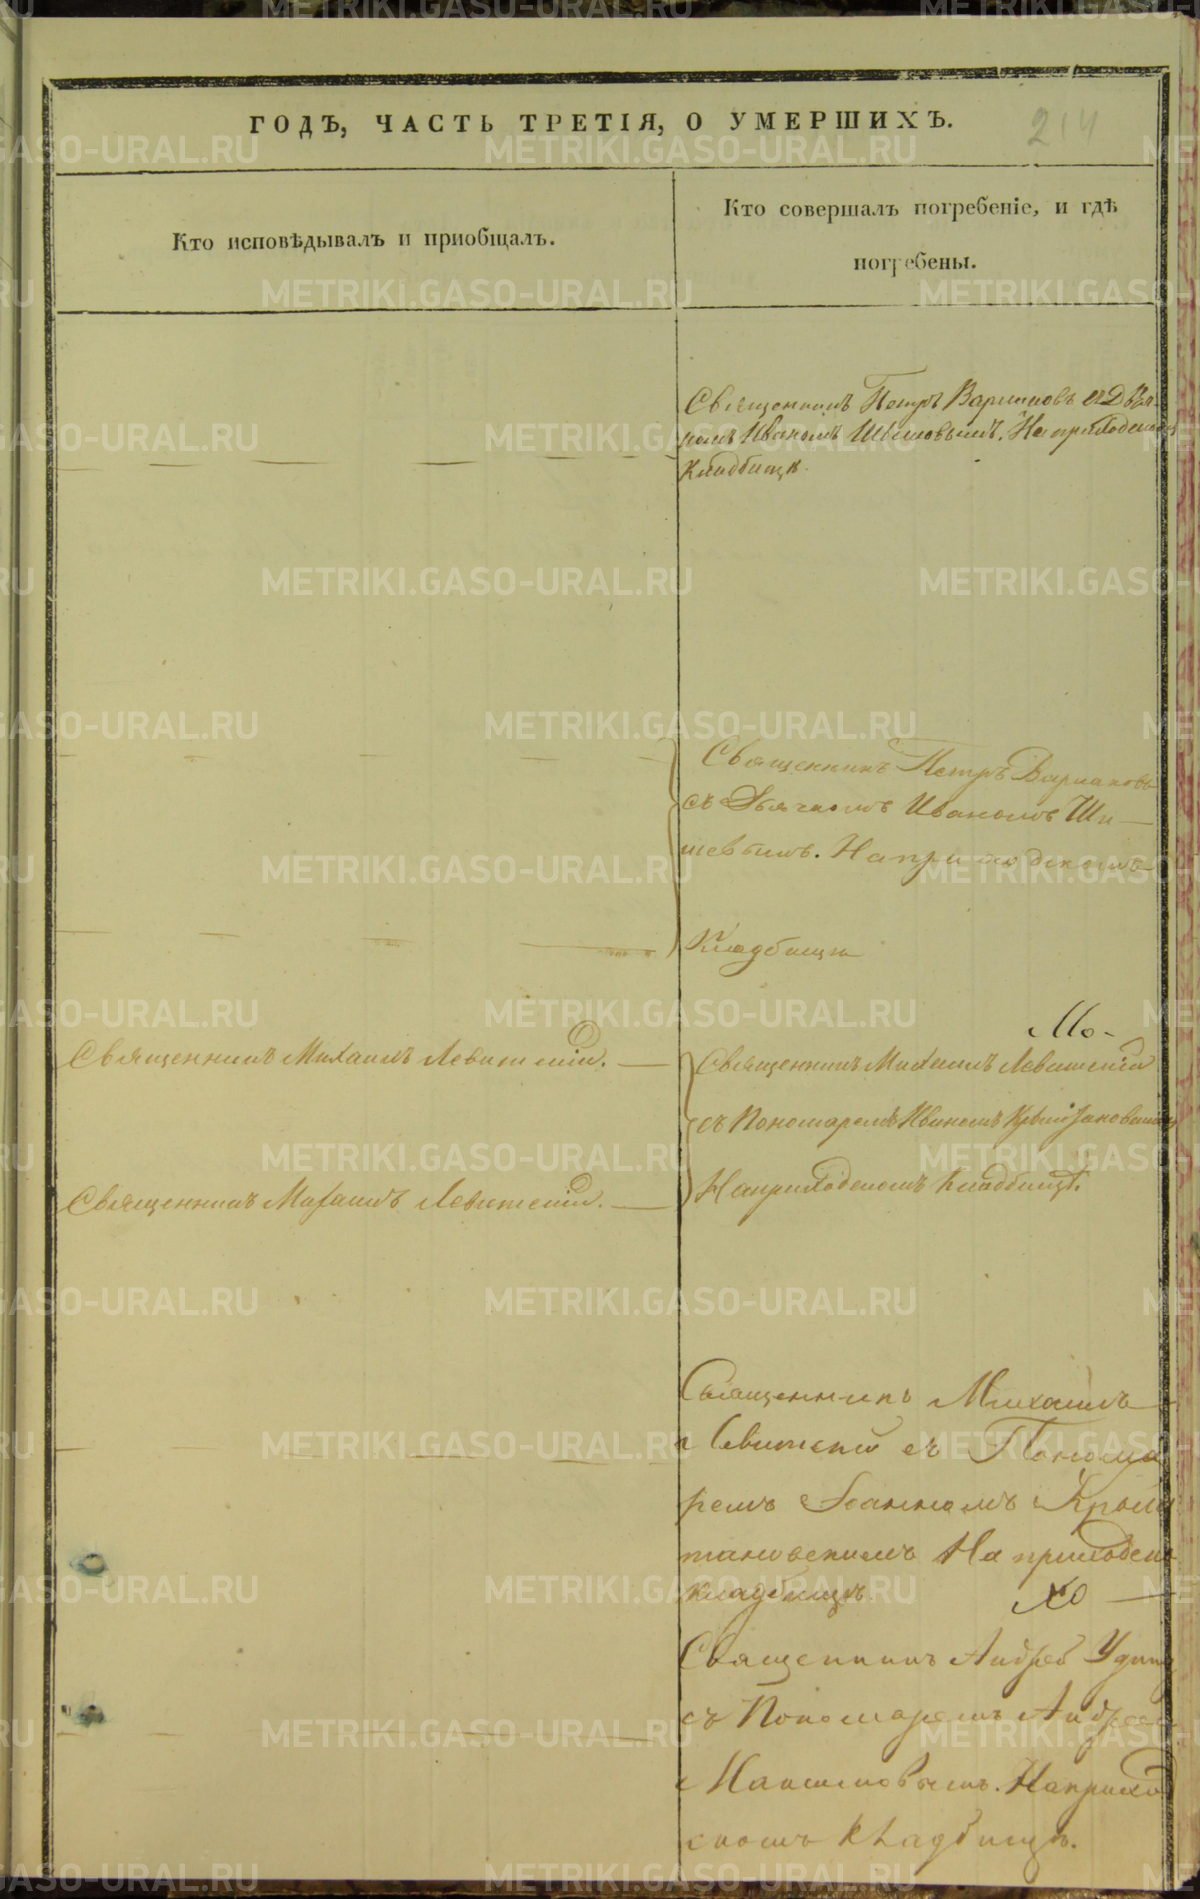 ГОДЪ, ЧАСТЬ ТРЕТІЯ, О УМЕРШИХЪ.
214
Кто исповѣдывалъ и пріобщалъ.
Кто совершалъ погребеніе, и гдѣ
погребены.
Священникъ Петръ Варушковъ съ Дья-
комъ Иваномъ Шишовымъ. На приходском
Кладбищѣ.
Священникъ Петръ
съ Дьячкомъ Иваномъ Ши-
шевымъ. На приходскомъ
Кладбищѣ
Мо-
Священникъ Михаилъ Левитскій.
Священникъ Михаилъ Левитскій
съ Пономаремъ Иваномъ
На приходскомъ кладбищѣ.
Священникъ Михаилъ Левитскій.
Священникъ Михаилъ
Левитскій съ Понома
ремъ Іоанномъ Хрыса
тановскимъ На приходско
кладбищѣ
Священникъ Андрей Удинц
съ Пономаремъ Андрее
На приход
скомъ кладбищѣ.
METRIKI.GASO-URAL.RU